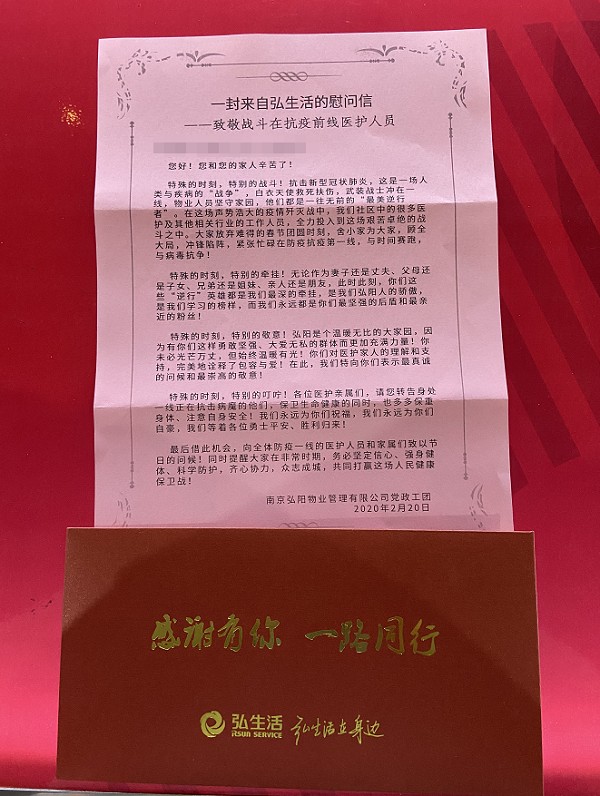 一封来自弘生活的慰问信
——致敬战斗在抗疫前线医护人员
您好！您和您的家人辛苦了！
特殊的时刻，特别的战斗！抗击新型冠状肺炎，这是一场人
类与疾病的“战争”，白衣天使救死扶伤，武装战士冲在一
线，物业人员坚守家园，他们都是一往无前的“最美逆行
者”。在这场声势浩大的疫情歼灭战中，我们社区中的很多医
护及其他相关行业的工作人员，全力投入到这场艰苦卓绝的战
斗之中。大家放弃难得的春节团圆时刻，舍小家为大家，顾全
大局，冲锋陷阵，紧张忙碌在防疫抗疫第一线，与时间赛跑，
与病毒抗争！
特殊的时刻，特别的牵挂！无论作为妻子还是丈夫、父母还
是子女、兄弟还是姐妹、亲人还是朋友，此时此刻，你们这
些“逆行”英雄都是我们最深的牵挂，是我们弘阳人的骄傲，
是我们学习的榜样，而我们永远都是你们最坚强的后盾和最亲
近的粉丝！
特殊的时刻，特别的敬意！弘阳是个温暖无比的大家园，因
为有你们这样勇敢坚强、大爱无私的群体而更加充满力量！你
未必光芒万丈，但始终温暖有光！你们对医护家人的理解和支
持，完美地诠释了包容与爱！在此，我们特向你们表示最真诚
的问候和最崇高的敬意！
特殊的时刻，特别的叮咛！各位医护亲属们，请您转告身处
一线正在抗击病魔的他们，保卫生命健康的同时，也多多保重
身体、注意自身安全！我们永远为你们祝福，我们永远为你们
自豪，我们等着各位勇士平安、胜利归来！
最后借此机会，向全体防疫一线的医护人员和家属们致以节
日的问候！同时提醒大家在非常时期，务必坚定信心、强身健
体、科学防护，齐心协力，众志成城，共同打赢这场人民健康
保卫战！
南京弘阳物业管理有限公司党政工团
2020年2月20日
感谢有你 一路同行
弘生活 弘生活在身边
RSUN SERVICE